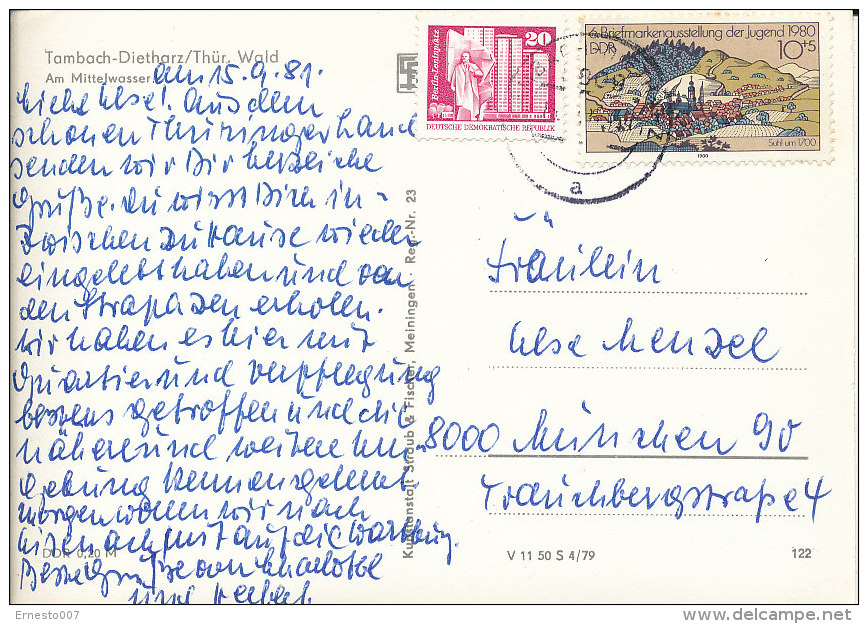 Tambach-Dietharz/Thür. Wald
Am Mittelwasser
am 15.9.81.
Liebe Ilse! Aus dem
schönen Thüringerland
senden wir Dir herzliche
Grüße. Du wirst Dich in-
zwischen zu Hause wieder
eingelebt haben und von
den Strapazen erholen.
Wir haben es hier mit
Quartier und Verpflegung
bestens getroffen und die
nähere und weitere Um-
gebung kennengelernt
morgen wollen wir nach
Eisenach mit auf die Wartburg.
Beste Grüße von Charlotte
und
DDR 0,20 M
Kunstanstalt Straub & Fischer, Meiningen · Reg.-Nr. 23
Berlin-Leninplatz
20
DEUTSCHE DEMOKRATISCHE REPUBLIK
6. Briefmarkenausstellung der Jugend 1980
DDR
10+5
Suhl um 1700
1980
a
Fräulein
Ilse Menzel
8000 München 90
Trauchbergstraße 4
V 11 50 S 4/79
122
Ernesto007
delcampe.net